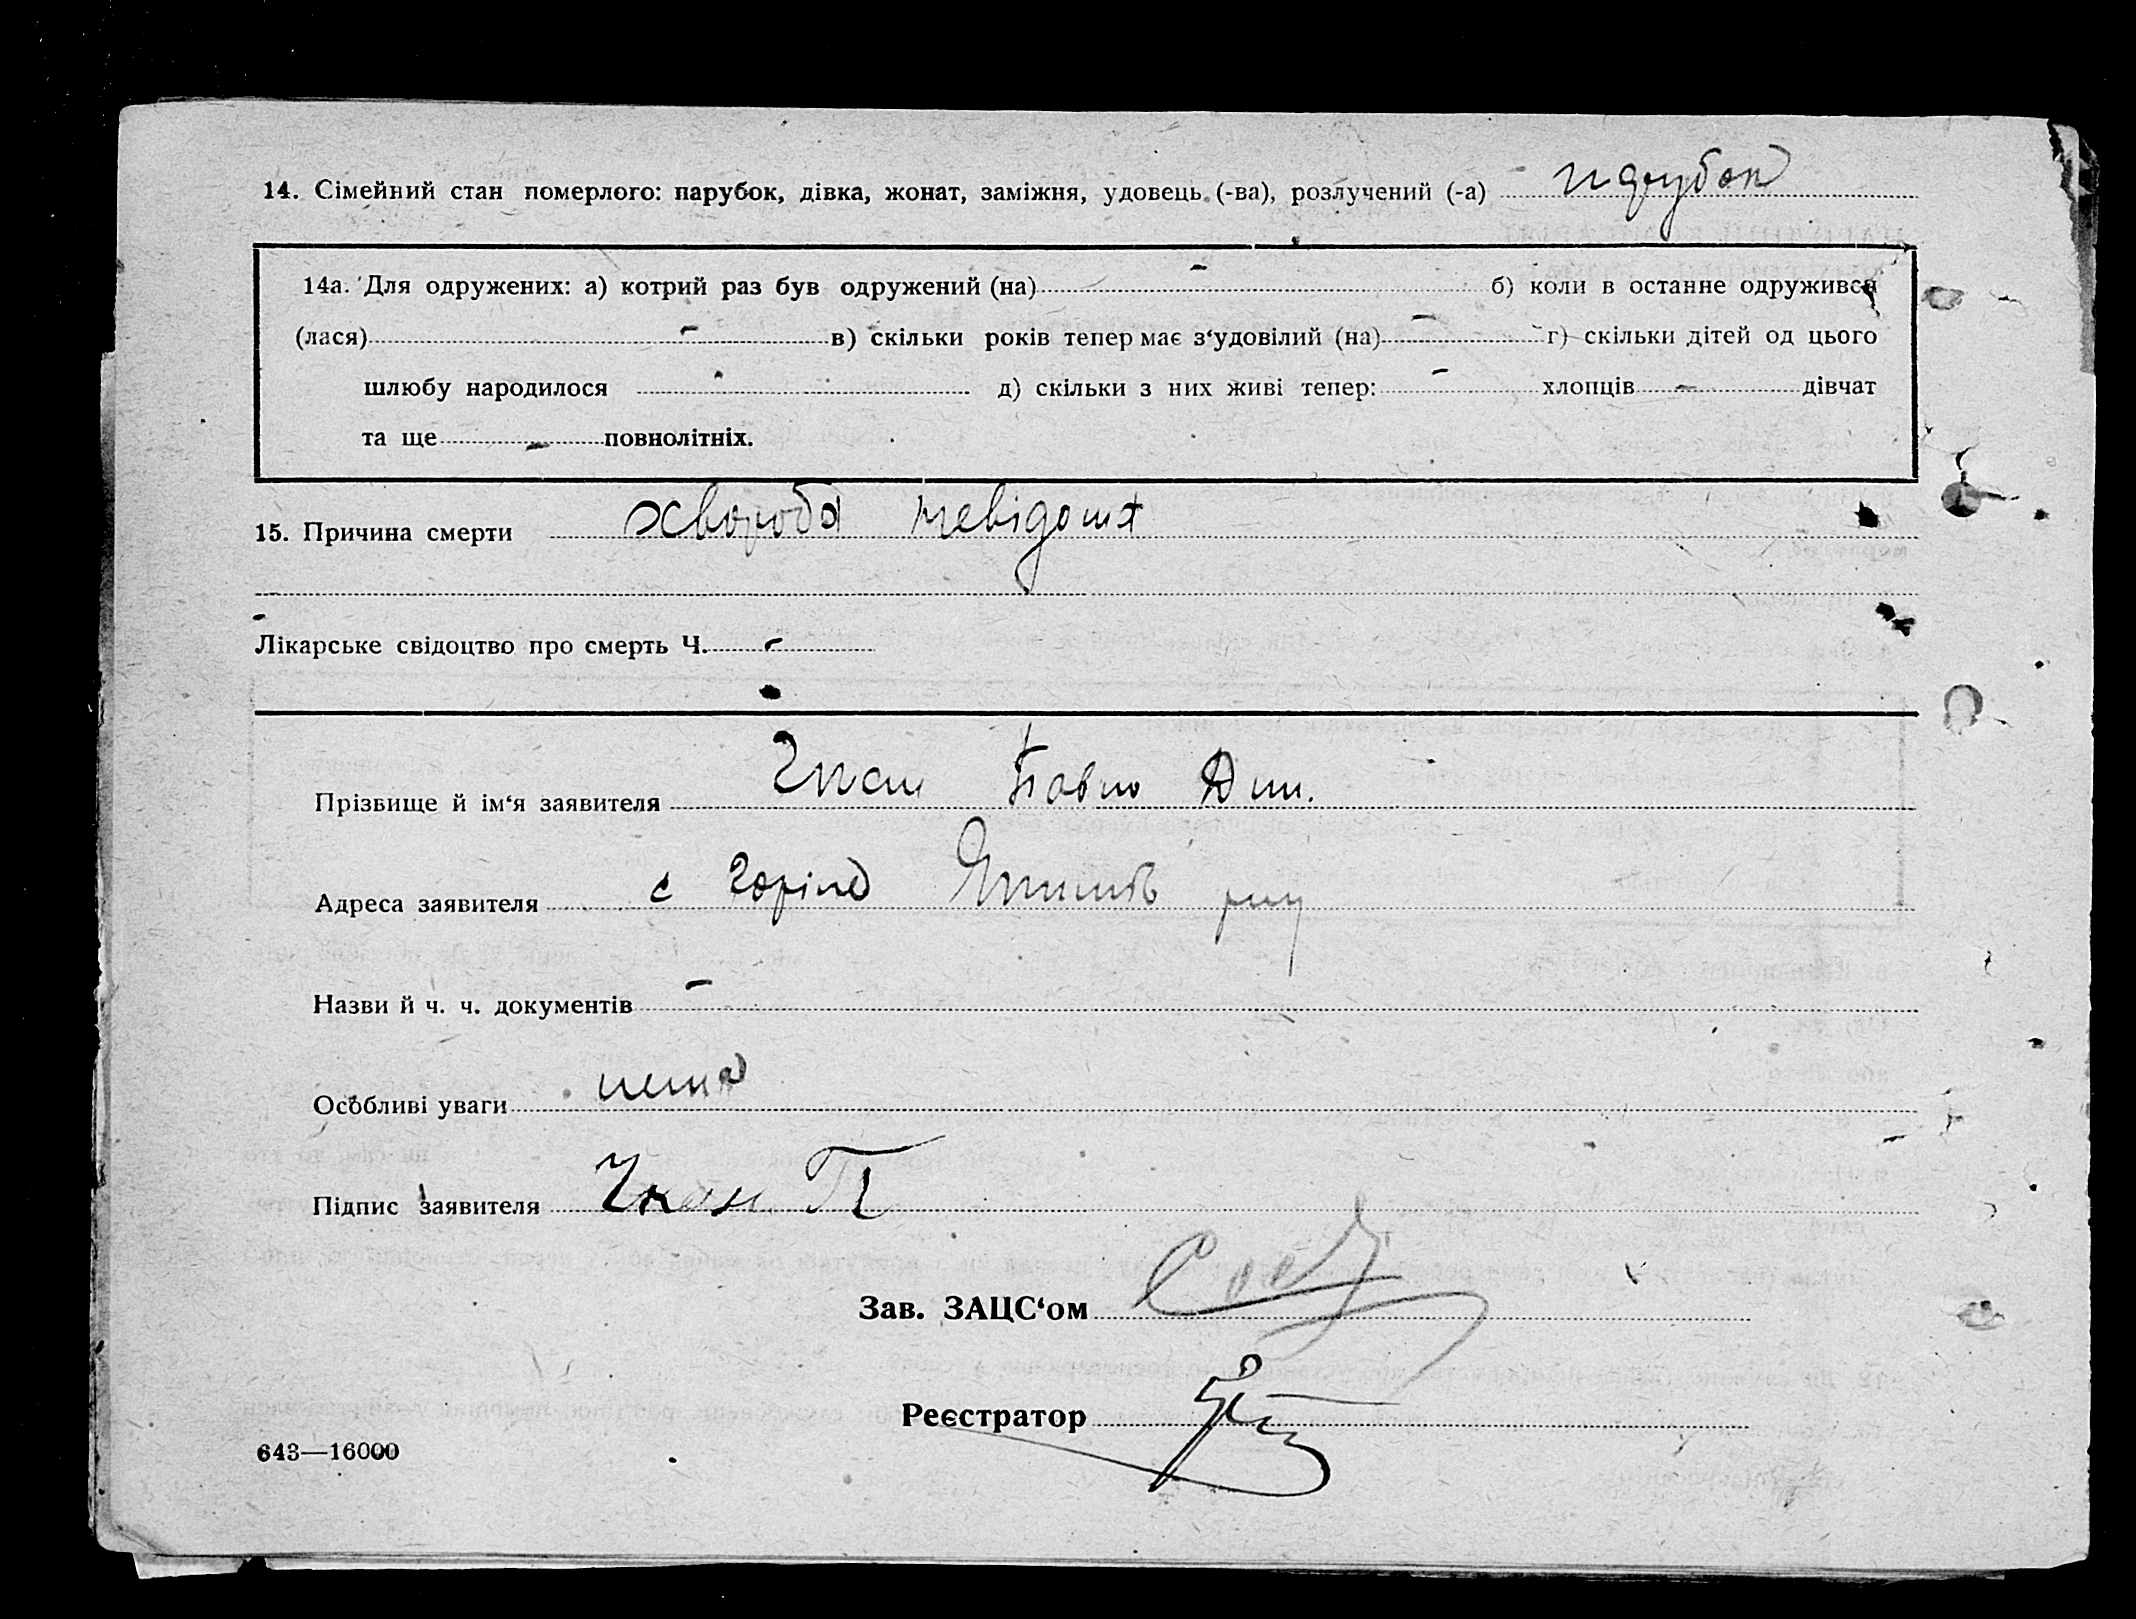 14. Сімейний стан померлого: парубок, дівка, жонат, заміжня, удовець (-ва), розлучений (-а) парубок
14а. Для одружених: а) котрий раз був одружений (на) - б) коли в останнє одружився
(лася) - в) скільки років тепер має з‘удовілий (на) - г) скільки дітей од цього
шлюбу народилося - д) скільки з них живі тепер: - хлопців - дівчат
та ще - повнолітніх.
15. Причина смерти хвороба невідома
Лікарське свідоцтво про смерть Ч. -
Прізвище й ім‘я заявителя Чкан Павло Дм.
Адреса заявителя с
Назви й ч. ч. документів -
Особливі уваги нема
Підпис заявителя Чкан П
Зав. ЗАЦС‘ом
Реєстратор
643—16000